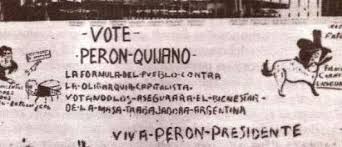 -VOTE-
-PERON-QUIJANO-
LA FORMULA-DEL-PUEBLO-CONTRA
LA-OLIGARQUIA-CAPITALISTA.
VOTANDOLOS-ASEGURARA-EL-BIENESTAR
-DE-LA-MASA-TRABAJADORA-ARGENTINA
VIVA-PERON-PRESIDENTE